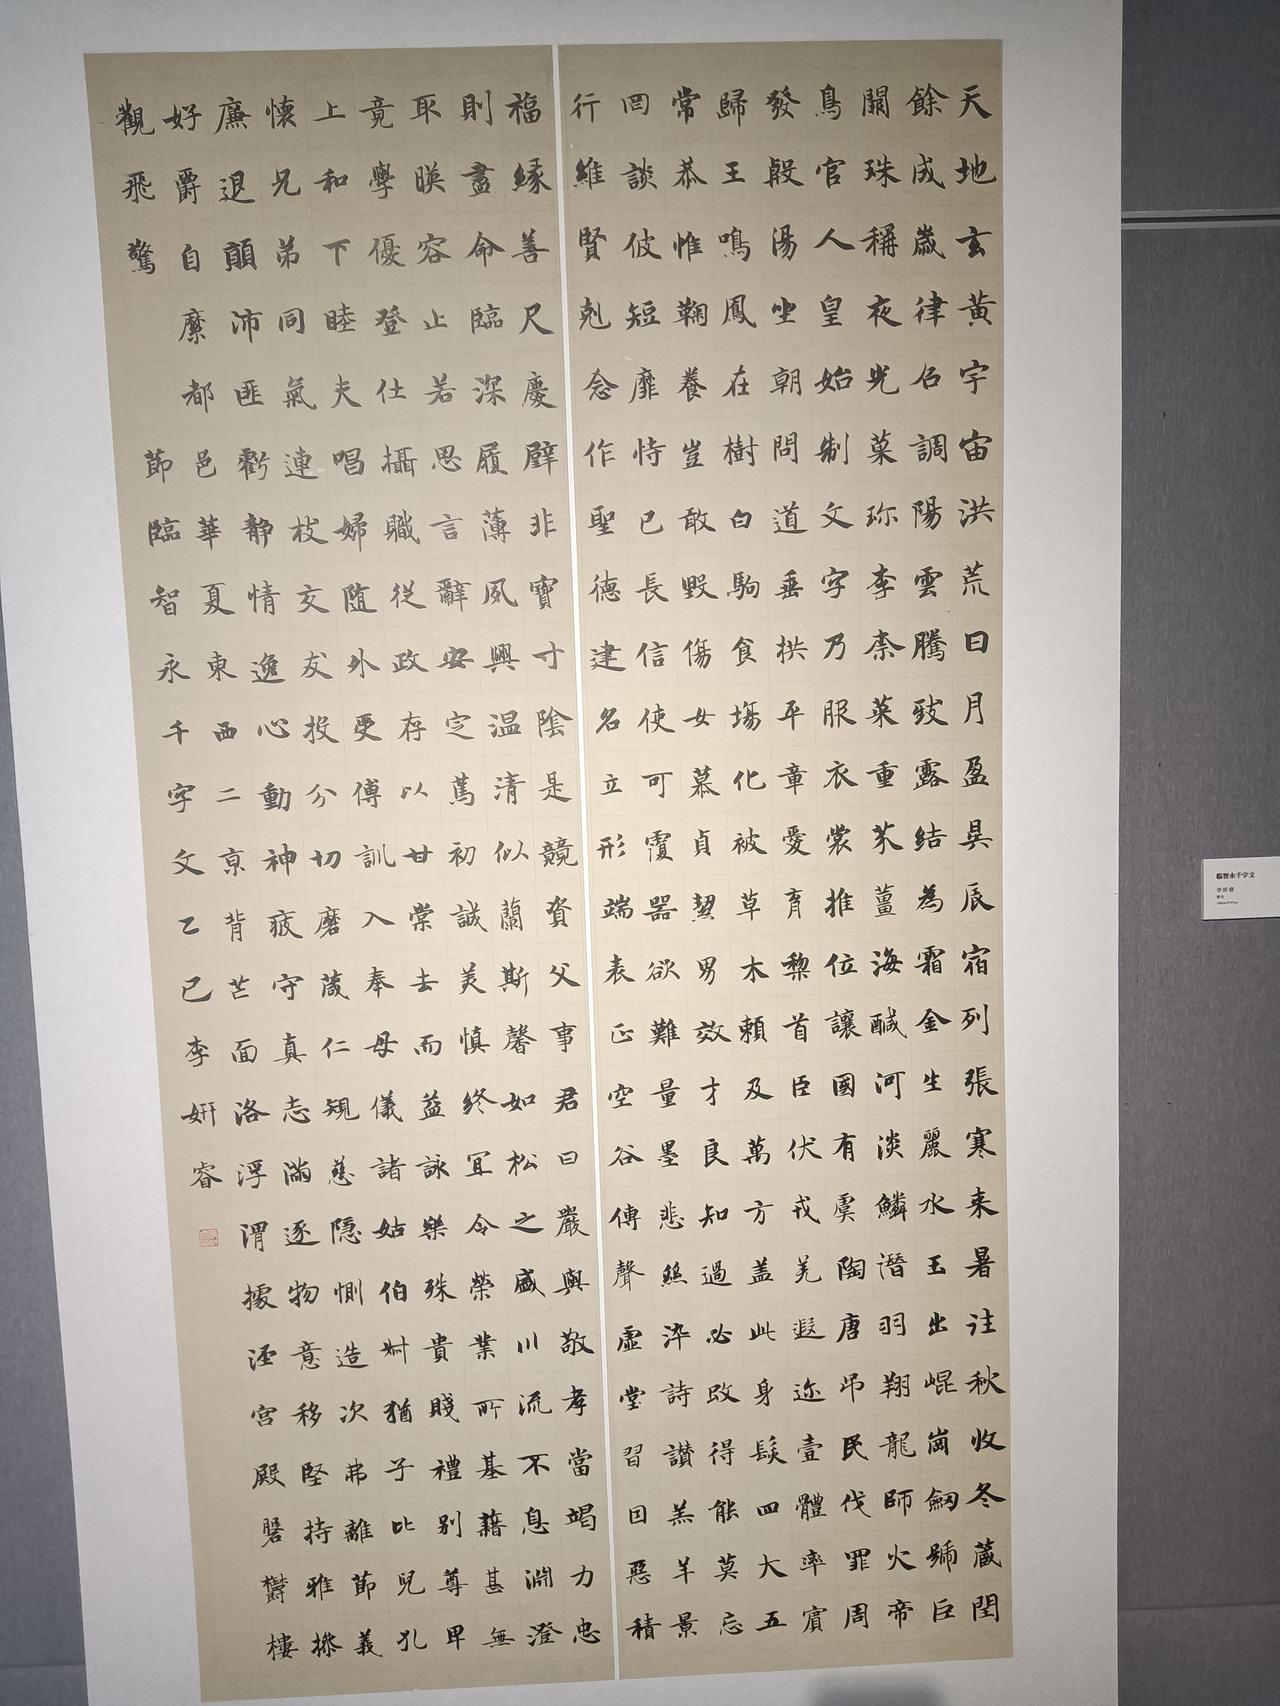 天地玄黃宇宙洪荒日月盈昃辰宿列張寒来暑往秋收冬蔵閏
餘成歲律召調陽雲騰致露結為霜金生麗水玉出崐崗劒號巨
闕珠稱夜光菓珎李柰菜重芥薑海醎河淡鱗潛羽翔龍師火帝
鳥官人皇始制文字乃服衣裳推位讓國有虞陶唐弔民伐罪周
發殷湯坐朝問道垂拱平章愛育黎首臣伏戎羌遐迩壹體率賓
歸王鳴鳳在樹白駒食場化被草木賴及萬方盖此身髮四大五
常恭惟鞠養豈敢毀傷女慕貞絜男效才良知過必改得能莫忘
罔談彼短靡恃己長信使可覆器欲難量墨悲絲淬詩讃羔羊景
行維賢剋念作聖德建名立形端表正空谷傳聲虛堂習因惡積
福緣善慶尺璧非寶寸陰是競資父事君曰嚴與敬孝當竭力忠
則盡命臨深履薄夙興溫清似蘭斯馨如松之盛川流不息淵澄
取暎容止若思言辭安定篤初誠美慎終宜令榮業所基藉甚無
竟學優登仕攝職從政存以甘棠去而益詠樂殊貴賤禮別尊卑
上和下睦夫唱婦随外受傅訓入奉母儀諸姑伯叔猶子比兒孔
懷兄弟同氣連枝交友投分切磨箴規仁慈隱惻造次弗離節義
廉退顛沛匪虧静情逸心動神疲守真志滿逐物意移堅持雅操
好爵自縻都邑華夏東西二京背芒面洛浮渭據涇宮殿磐鬱樓
觀飛驚
節臨智永千字文乙巳李妍睿
臨智永千字文
李妍睿